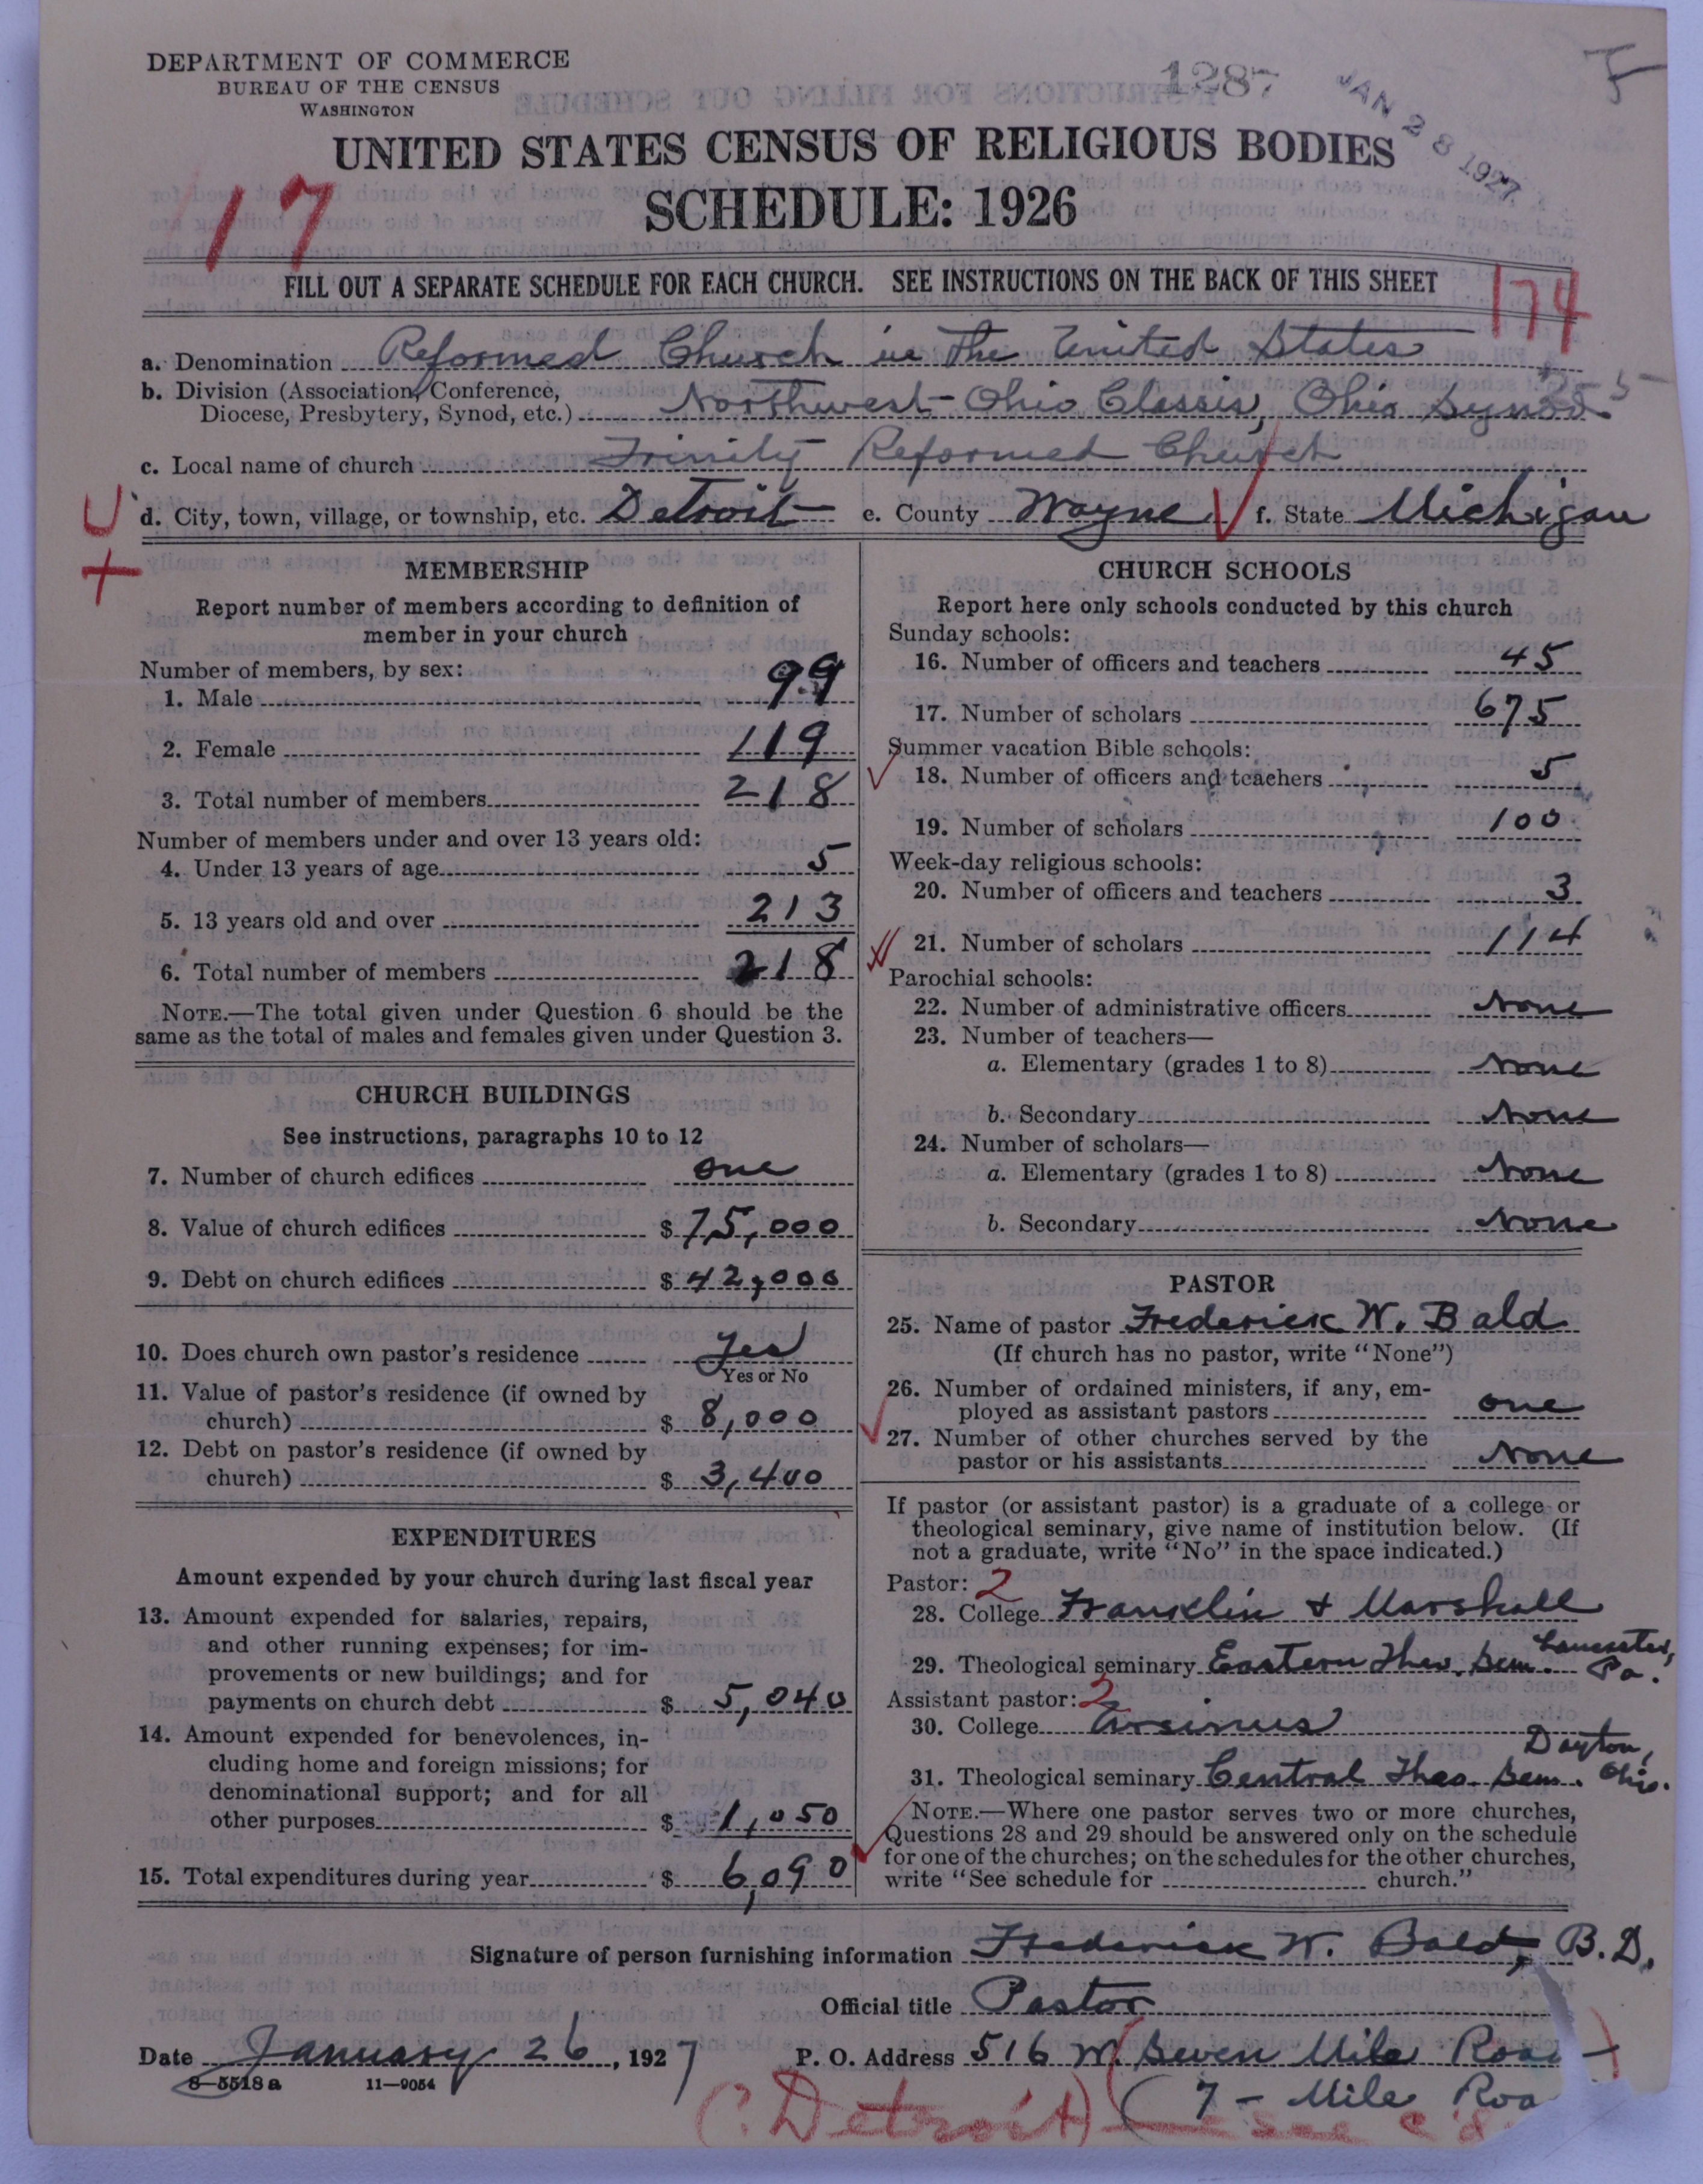 DEPARTMENT OF COMMERCE
BUREAU OF THE CENSUS
WASHINGTON
1287
JAN 28 1927
UNITED STATES CENSUS OF RELIGIOUS BODIES
SCHEDULE: 1926
17
FILL OUT A SEPARATE SCHEDULE FOR EACH CHURCH. SEE INSTRUCTIONS ON THE BACK OF THIS SHEET
174
a. Denomination Reformed Church in The United States
b. Division (Association, Conference,
Diocese, Presbytery, Synod, etc.) Northwest Ohio Classis, Ohio Synod
c. Local name of church Trinity Reformed Church
d. City, town, village, or township, etc. Detroit e. County Wayne f. State Michigan
MEMBERSHIP
Report number of members according to definition of
member in your church
Number of members, by sex:
1. Male 99
2. Female 119
3. Total number of members 218
Number of members under and over 13 years old:
4. Under 13 years of age 5
5. 13 years old and over 213
6. Total number of members 218
NOTE.—The total given under Question 6 should be the
same as the total of males and females given under Question 3.
CHURCH BUILDINGS
See instructions, paragraphs 10 to 12
7. Number of church edifices one
8. Value of church edifices $ 75,000
9. Debt on church edifices $ 42,000
10. Does church own pastor's residence Yes
Yes or No
11. Value of pastor's residence (if owned by
church) $ 8,000
12. Debt on pastor's residence (if owned by
church) $ 3,400
EXPENDITURES
Amount expended by your church during last fiscal year
13. Amount expended for salaries, repairs,
and other running expenses; for im-
provements or new buildings; and for
payments on church debt $ 5,040
14. Amount expended for benevolences, in-
cluding home and foreign missions; for
denominational support; and for all
other purposes $ 1,050
15. Total expenditures during year $ 6,090
CHURCH SCHOOLS
Report here only schools conducted by this church
Sunday schools:
16. Number of officers and teachers 45
17. Number of scholars 675
Summer vacation Bible schools:
18. Number of officers and teachers 5
19. Number of scholars 100
Week-day religious schools:
20. Number of officers and teachers 3
21. Number of scholars 114
Parochial schools:
22. Number of administrative officers None
23. Number of teachers—
a. Elementary (grades 1 to 8) None
b. Secondary None
24. Number of scholars—
a. Elementary (grades 1 to 8) None
b. Secondary None
PASTOR
25. Name of pastor Frederick W. Bald
(If church has no pastor, write "None")
26. Number of ordained ministers, if any, em-
ployed as assistant pastors one
27. Number of other churches served by the
pastor or his assistants None
If pastor (or assistant pastor) is a graduate of a college or
theological seminary, give name of institution below. (If
not a graduate, write "No" in the space indicated.)
Pastor: 2
28. College Franklin & Marshall
29. Theological seminary Eastern Theo. Sem. Lancaster, Pa.
Assistant pastor: 2
30. College Ursinus
31. Theological seminary Central Theo. Sem. Dayton, Ohio.
NOTE.—Where one pastor serves two or more churches,
Questions 28 and 29 should be answered only on the schedule
for one of the churches; on the schedules for the other churches,
write "See schedule for church."
Signature of person furnishing information Frederick W. Bald, B.D.
Official title Pastor
Date January 26, 1927 P. O. Address 516 W. Seven Mile Roa
8—5518a 11—9054
(7 - Mile Roa
(Detroit) see